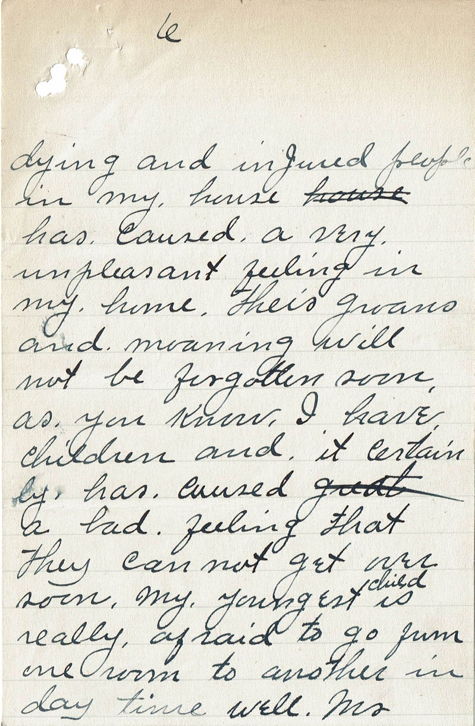 6
dying and injured people
in my. house house
has. caused. a very.
unpleasant feeling in
my. home. Theis groans
and. moaning will
not be forgotten soon,
as. you know. I have
children and. it certain
ly. has. caused great
a bad. feeling that
they can not get over
soon. My. youngest child is
really, afraid to go from
one room to another in
day time well. Mr